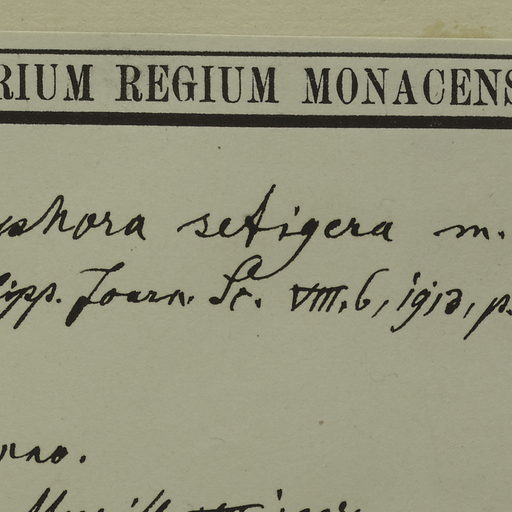 RIUM REGIUM MONACENS
phora setigera m.
ipp. Journ. Sc. VIII. 6, 1913, p.